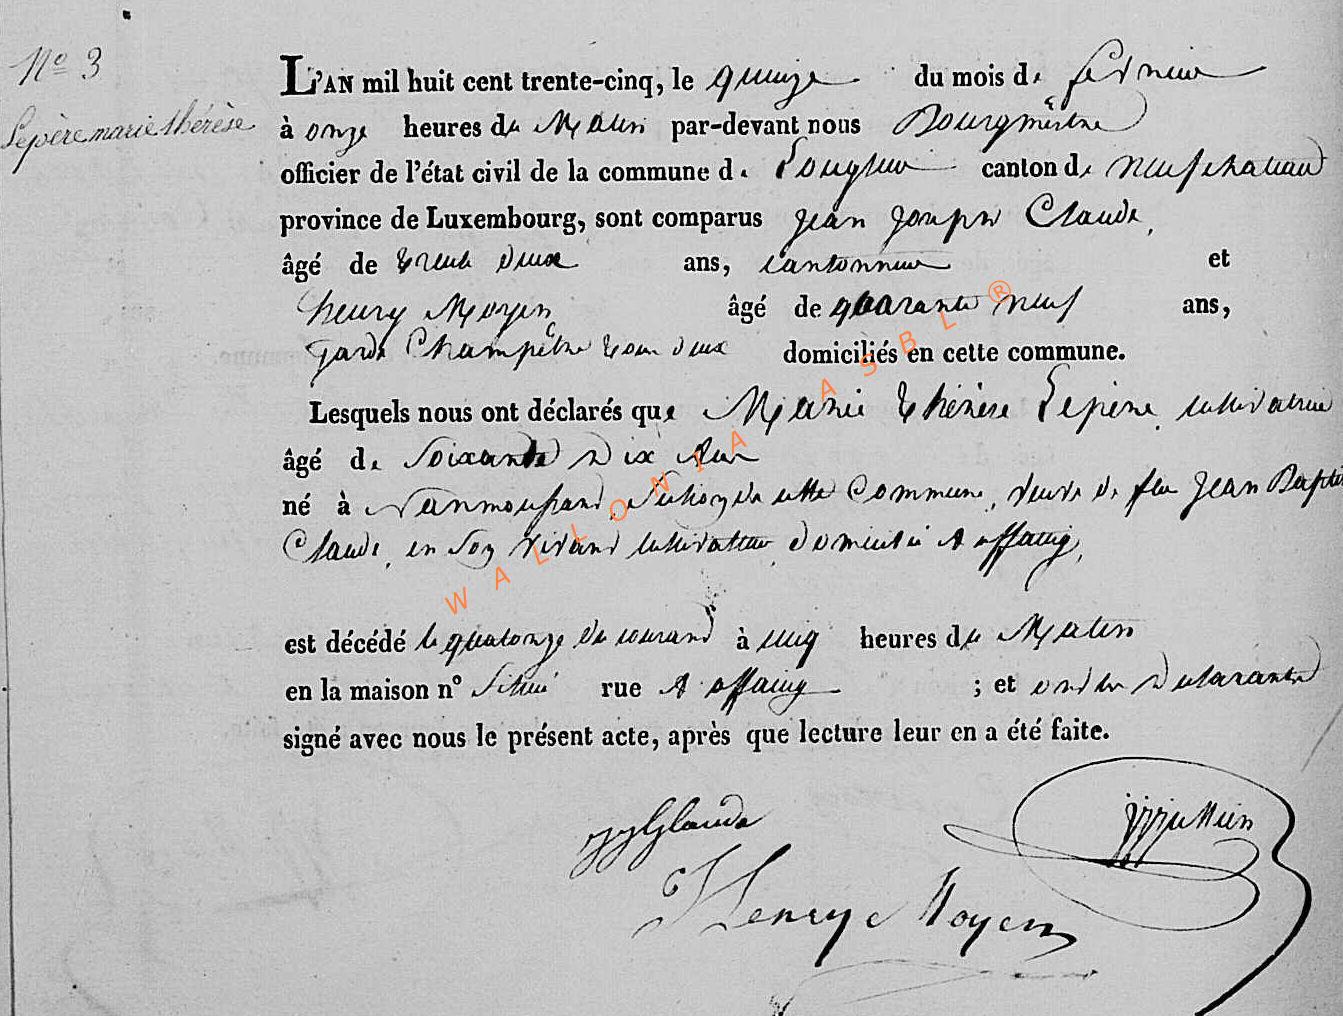 Nº 3
Lepère marie thérèse
L'AN mil huit cent trente-cinq, le quinze du mois de fevrier
à onze heures du Matin par-devant nous Bourgmèstre
officier de l'état civil de la commune de Longlier canton de neufchateau
province de Luxembourg, sont comparus jean joseph Claude,
âgé de trente deux ans, cantonnier et
henry Moyen âgé de quarante neuf ans,
garde Champêtre tous deux domiciliés en cette commune.
Lesquels nous ont déclarés que Marie thérèse Lepère, cultivatrice
âgé de Soixante Dix Ans
né à Namoussart, Section de cette Commune, veuve de feu Jean Baptiste
Claude, en Son vivant cultivateur, domicilié A offaing,
est décédé le quatorze du courant à cinq heures du Matin
en la maison nº Située rue A offaing ; et ont les Déclarants
signé avec nous le présent acte, après que lecture leur en a été faite.
jj Glaude
Henrye Moyen
WALLONIA ASBL ®